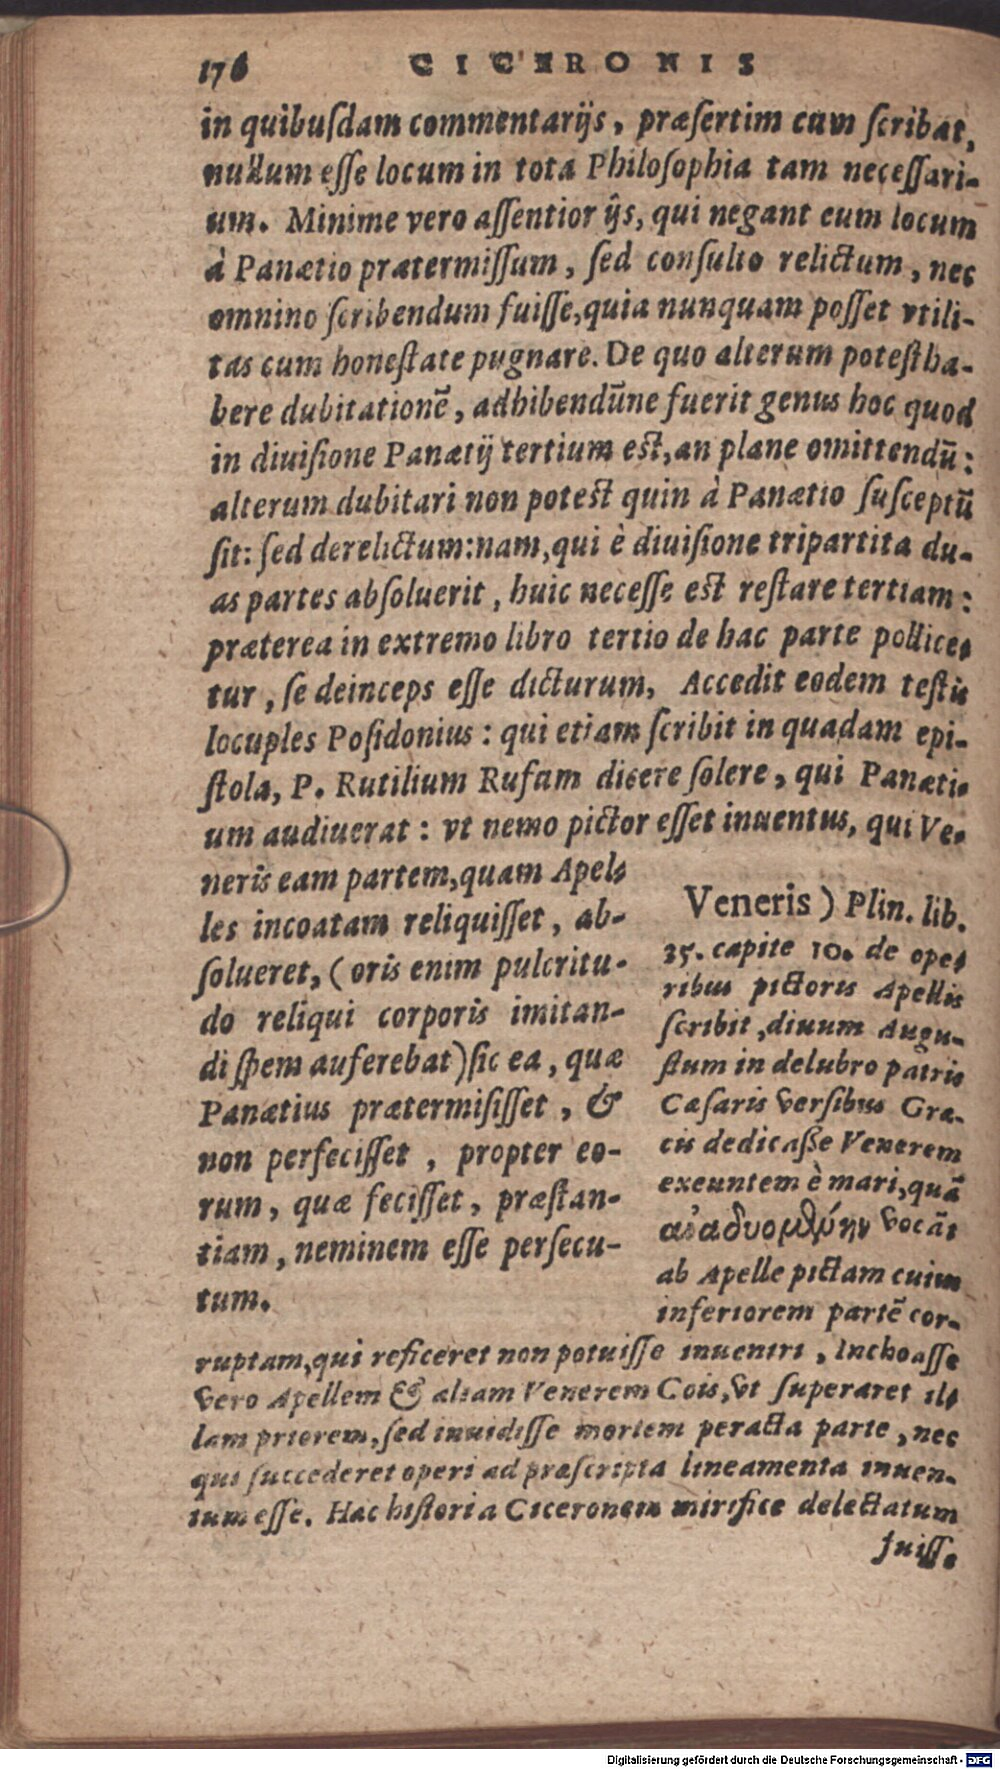 176 CICERONIS
in quibuſdam commentarijs, præſertim cum ſcribat,
nullum eſſe locum in tota Philoſophia tam neceſſari-
um. Minime vero aſſentior ijs, qui negant eum locum
à Panætio prætermiſſum, ſed conſulto relictum, nec
omnino ſcribendum fuiſſe, quia nunquam poſſet vtili-
tas cum honeſtate pugnare. De quo alterum poteſt ha-
bere dubitationē, adhibendūne fuerit genus hoc quod
in diuiſione Panætij tertium eſt, an plane omittendū:
alterum dubitari non poteſt quin à Panætio ſuſceptū
ſit: ſed derelictum: nam, qui è diuiſione tripartita du-
as partes abſoluerit, huic neceſſe eſt reſtare tertiam:
præterea in extremo libro tertio de hac parte pollice-
tur, ſe deinceps eſſe dicturum, Accedit eodem teſtis
locuples Poſidonius: qui etiam ſcribit in quadam epi-
ſtola, P. Rutilium Rufum dicere ſolere, qui Panæti-
um audiuerat: vt nemo pictor eſſet inuentus, qui Ve-
neris eam partem, quam Apel-
les incoatam reliquiſſet, ab-
ſolueret, (oris enim pulcritu-
do reliqui corporis imitan-
di ſpem auferebat) ſic ea, quæ
Panætius prætermiſiſſet, &
non perfeciſſet, propter eo-
rum, quæ feciſſet, præſtan-
tiam, neminem eſſe perſecu-
tum.
Veneris) Plin. lib.
35. capite 10. de ope-
ribus pictoris Apellis
ſcribit, diuum Augu-
ſtum in delubro patris
Cæſaris verſibus Græ-
cis dedicaſſe Venerem
exeuntem è mari, quā
ἀναδυομένην vocāt
ab Apelle pictam cuius
inferiorem partē cor-
ruptam, qui reficeret non potuiſſe inueniri, Inchoaſſe
vero Apellem & aliam Venerem Cois, vt ſuperaret il-
lam priorem, ſed inuidiſſe mortem peracta parte, nec
qui ſuccederet operi ad præſcripta lineamenta inuen-
tum eſſe. Hac hiſtoria Ciceronem mirifice delectatum
fuiſſe
Digitalisierung gefördert durch die Deutsche Forschungsgemeinschaft - DFG